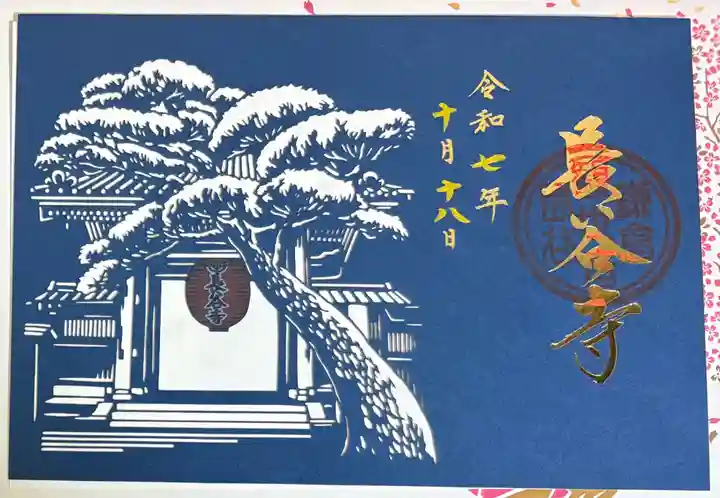 長谷寺
令和七年
十月十八日
長谷寺